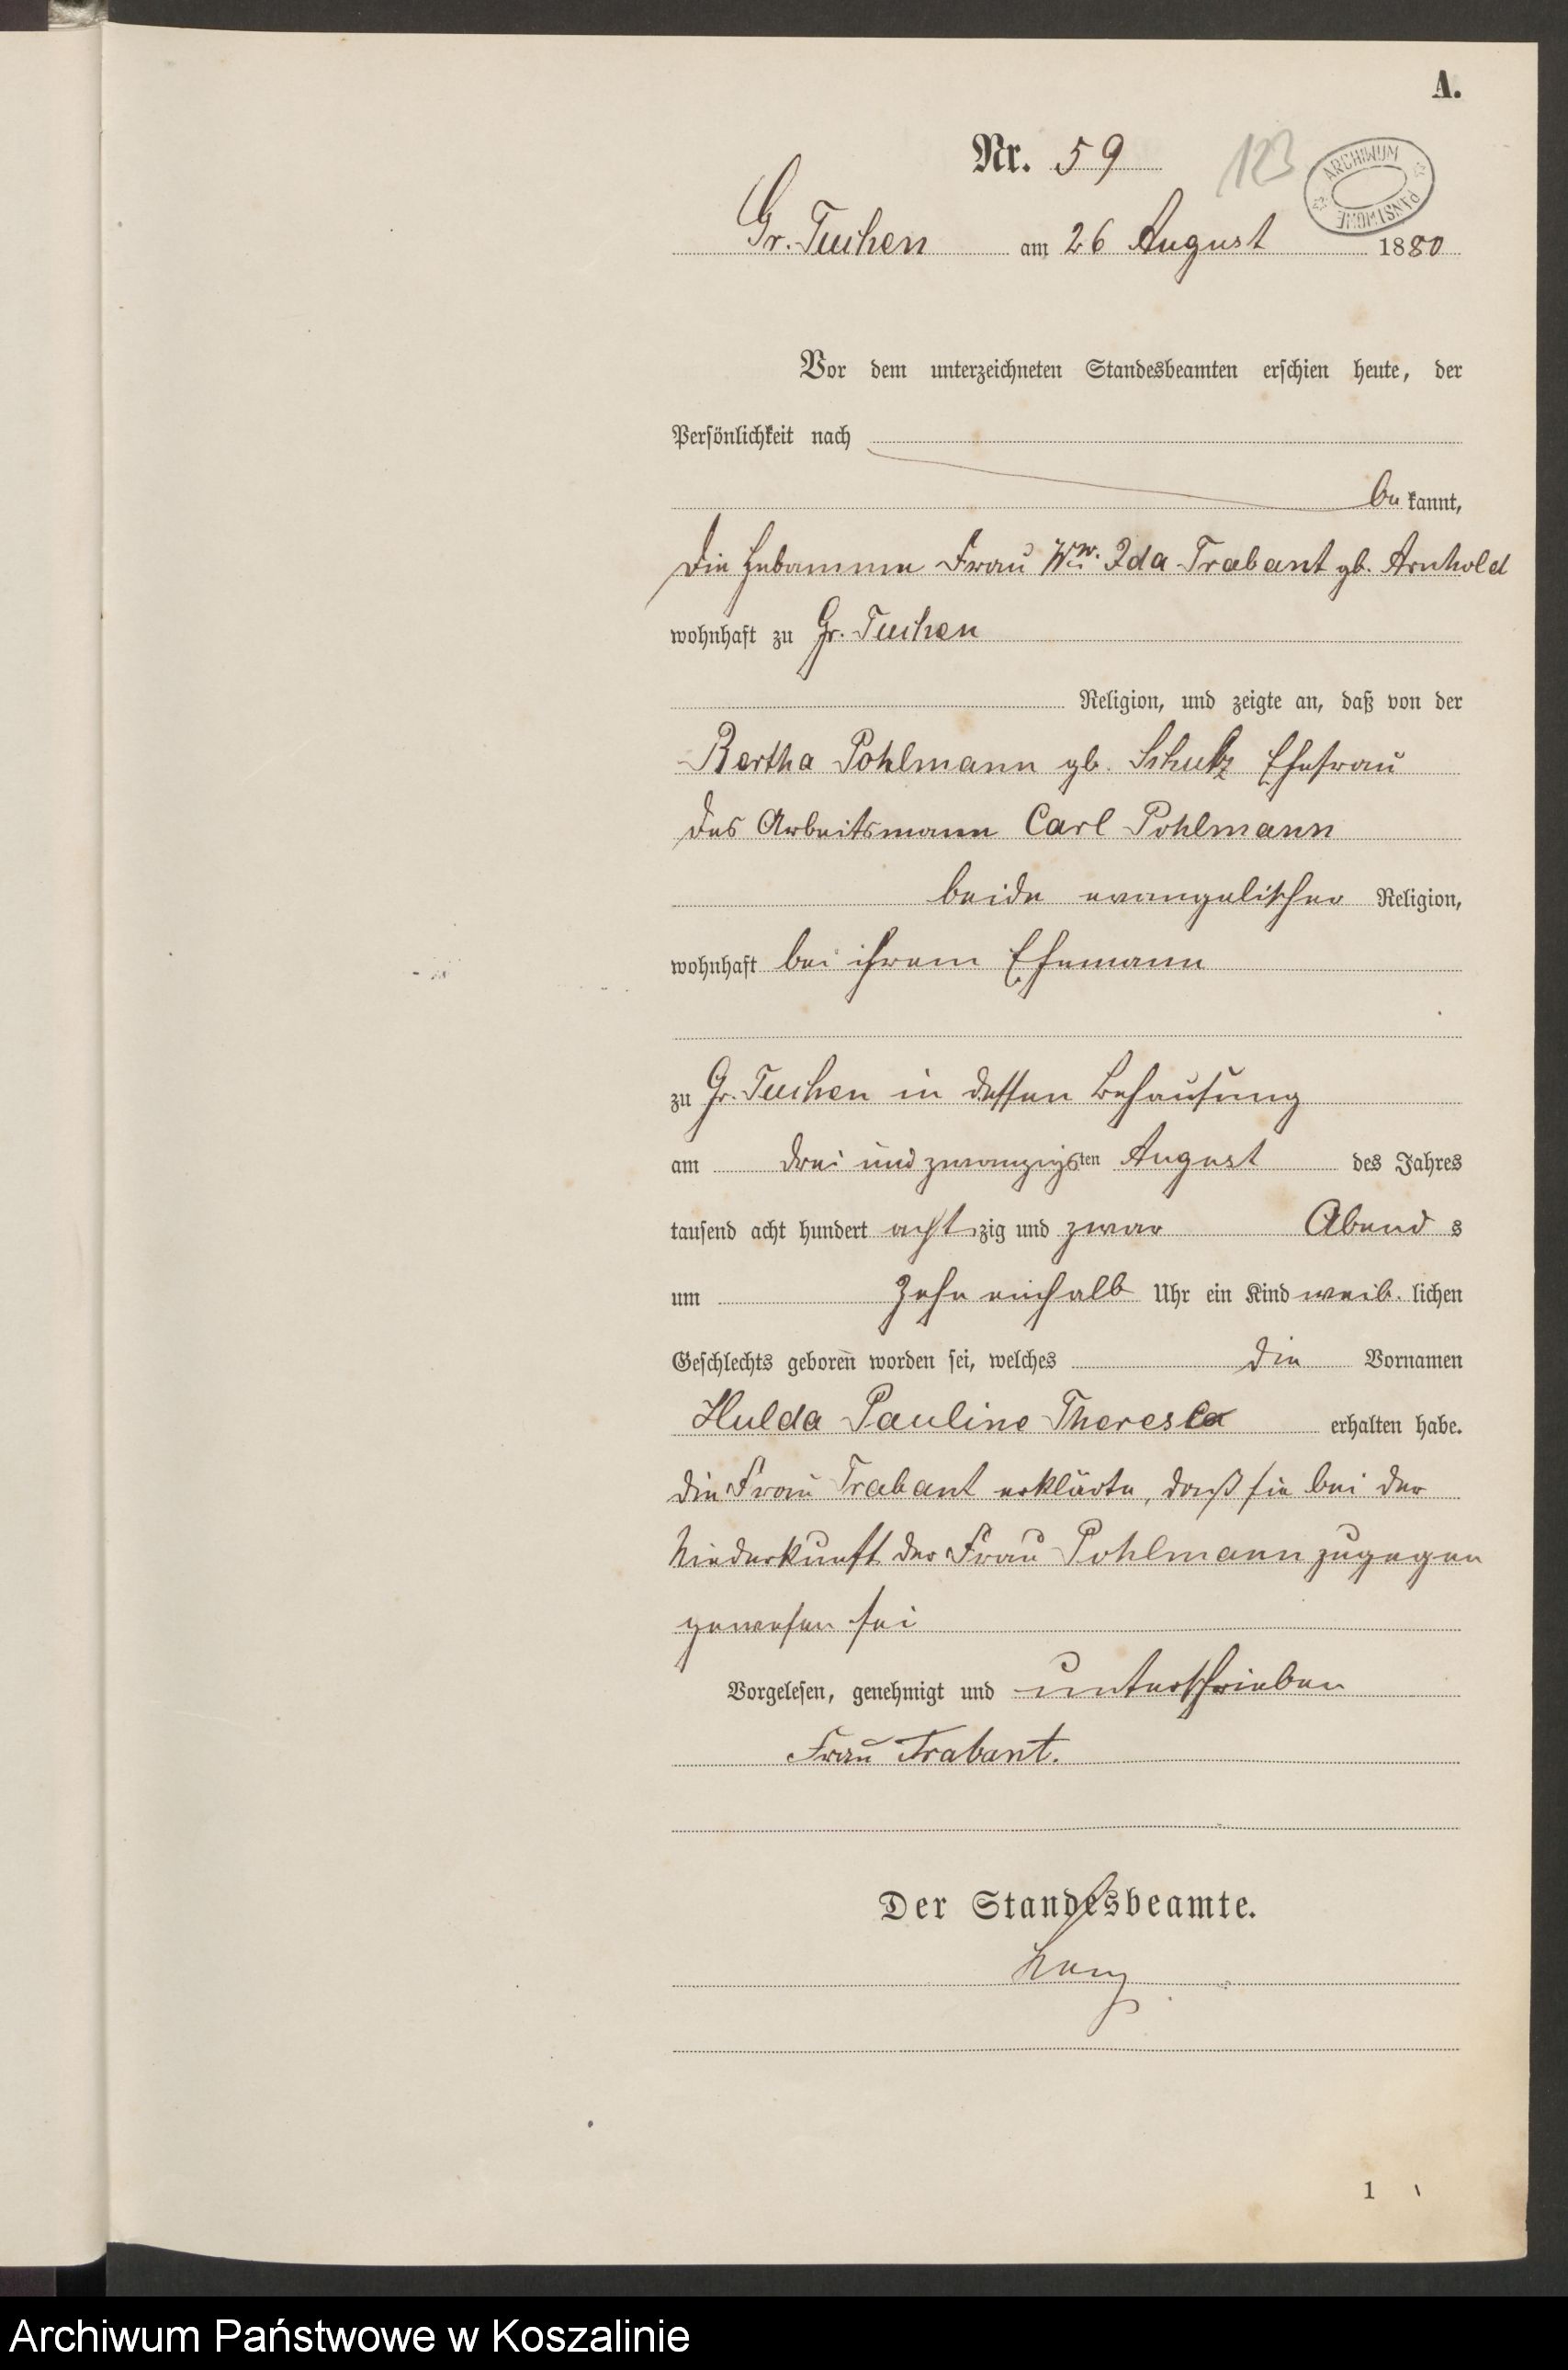 A.
Nr. 59
123
ARCHIWUM PAŃSTWOWE
Gr. Tuchen am 26 August 1880
Vor dem unterzeichneten Standesbeamten erschien heute, der
Persönlichkeit nach
be kannt,
die Hebamme Frau Ww. Ida Trabant gb. Arnhold
wohnhaft zu Gr. Tuchen
Religion, und zeigte an, daß von der
Bertha Pohlmann gb. Schulz Ehefrau
des Arbeitsmann Carl Pohlmann
beide evangelischer Religion,
wohnhaft bei ihrem Ehemann
zu Gr. Tuchen in dessen Behausung
am drei und zwanzigsten August des Jahres
tausend acht hundert achtzig und zwar Abends
um zehn einhalb Uhr ein Kind weib. lichen
Geschlechts geboren worden sei, welches die Vornamen
Hulda Pauline Theresea erhalten habe.
die Frau Trabant erklärte, daß sie bei der
Niederkunft der Frau Pohlmann zugegen
gewesen sei
Vorgelesen, genehmigt und unterschrieben
Frau Trabant.
Der Standesbeamte.
1
Archiwum Państwowe w Koszalinie